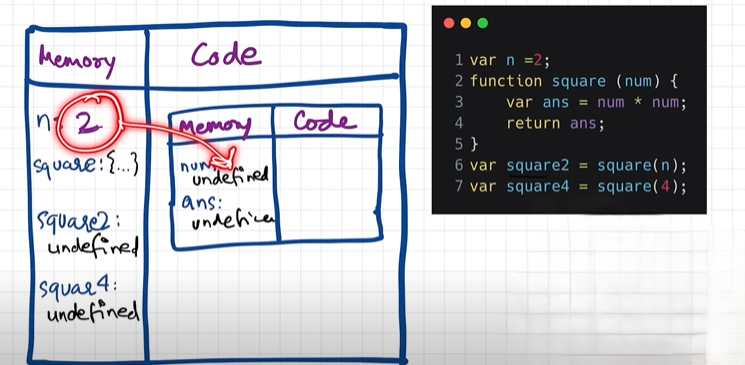 Memory
Code
n: 2
square: {...}
square2:
undefined
squar4:
undefined
Memory
Code
num
undefined
ans:
undefined
1 var n =2;
2 function square (num) {
3 var ans = num * num;
4 return ans;
5 }
6 var square2 = square(n);
7 var square4 = square(4);